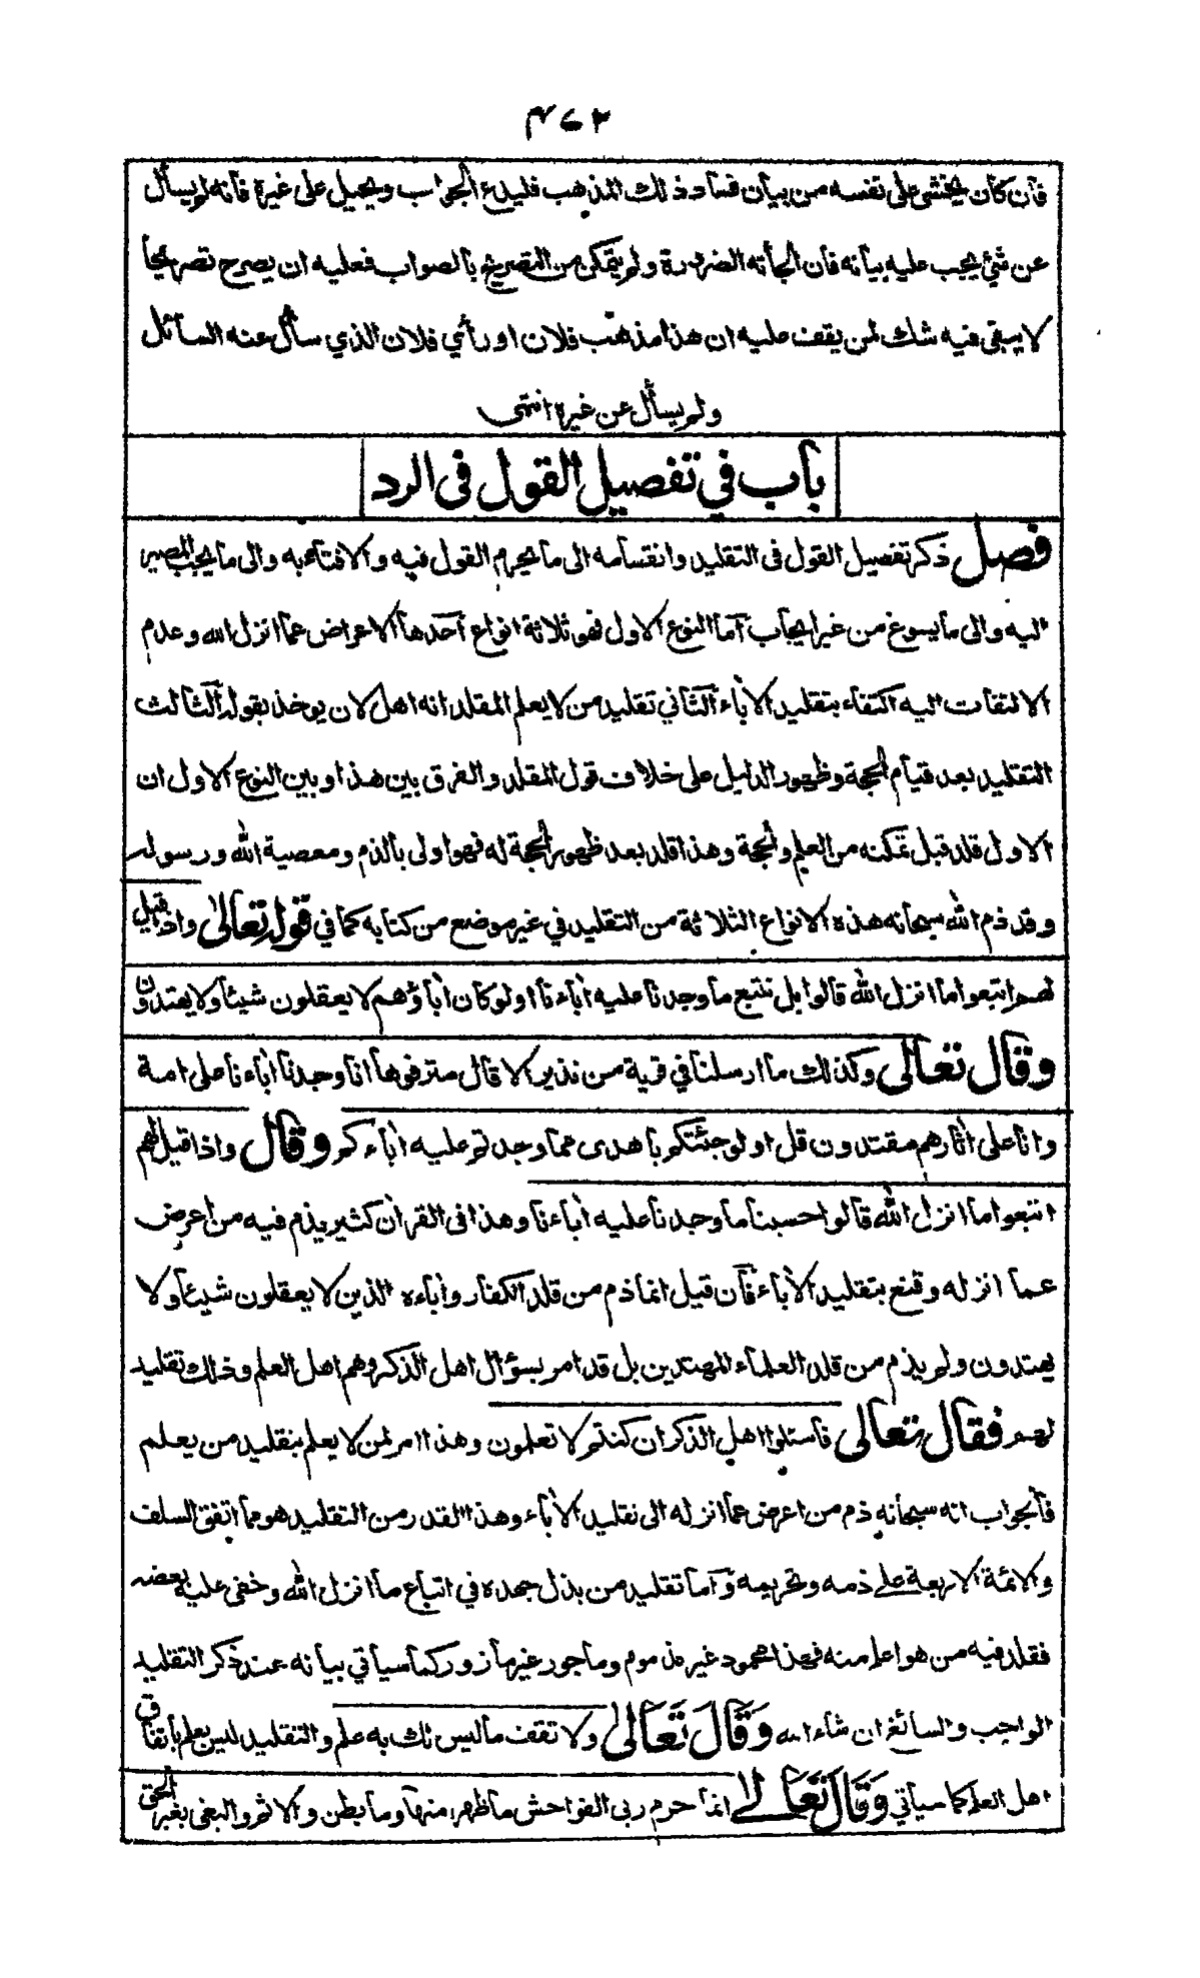 ٤٦٢
فان كان يخشى على نفسه من بيان فساد ذلك المذهب فليدع الجواب ويحيل على غيره فانه لم يسأل
عن شئ يجب عليه بيانه فان الجأته الضرورة ولم يتمكن من التصريح بالصواب فعليه ان يصرح تصريحا
لا يبقى فيه شك لمن يقف عليه ان هذا مذهب فلان او رأي فلان الذي سأل عنه السائل
ولم يسأل عن غيره انتهى
باب في تفصيل القول فى الرد
فصل ذكر تفصيل القول فى التقليد وانقسامه الى ما يحرم القول فيه والافتاء به والى ما يجب المصير
اليه والى ما يسوغ من غير ايجاب أما النوع الاول فهو ثلاثة انواع أحدها الاعراض عما انزل الله وعدم
الالتفات اليه اكتفاء بتقليد الأباء الثاني تقليد من لا يعلم المقلد انه اهل لان يوخذ بقوله الثالث
التقليد بعد قيام الحجة وظهور الدليل على خلاف قول المقلد والفرق بين هذا وبين النوع الاول ان
الاول قلد قبل تمكنه من العلم والحجة وهذا قلد بعد ظهور الحجة له فهو اولى بالذم ومعصية الله ورسوله
وقد ذم الله سبحانه هذه الانواع الثلاثة من التقليد في غير موضع من كتابه كما في قوله تعالى واذا قيل
لهم اتبعوا ما انزل الله قالوا بل نتبع ما وجدنا عليه أباءنا اولو كان أباؤهم لا يعقلون شيئا ولا يهتدون
وقال تعالى وكذلك ما ارسلنا في قرية من نذير الا قال مترفوها انا وجدنا أباءنا على امة
وانا على أثارهم مقتدون قل اولو جئتكم باهدى مما وجدتم عليه أباءكم وقال واذا قيل لهم
اتبعوا ما انزل الله قالوا حسبنا ما وجدنا عليه أباءنا وهذا فى القرأن كثير يذم فيه من اعرض
عما انزله وقنع بتقليد الأباء فان قيل انما ذم من قلد الكفار وأباءه الذين لا يعقلون شيئا ولا
يهتدون ولم يذم من قلد العلماء المهتدين بل قد امر بسؤال اهل الذكر وهم اهل العلم وذلك تقليد
لهم فقال تعالى فاسئلوا اهل الذكر ان كنتم لا تعلمون وهذا امر لمن لا يعلم بتقليد من يعلم
فالجواب انه سبحانه ذم من اعرض عما انزله الى تقليد الأباء وهذا القدر من التقليد هو مما اتفق السلف
والائمة الاربعة على ذمه وتحريمه وأما تقليد من بذل جهده في اتباع ما انزل الله وخفي عليه بعضه
فقلد فيه من هو اعلم منه فهذا محمود غير مذموم وماجور غير مازور كما سيأتي بيانه عند ذكر التقليد
الواجب والسائغ ان شاء الله وقال تعالى ولا تقف ما ليس لك به علم والتقليد ليس بعلم باتفاق
اهل العلم كما سيأتي وقال تعالى انما حرم ربى الفواحش ما ظهر منها وما بطن والاثم والبغى بغير الحق